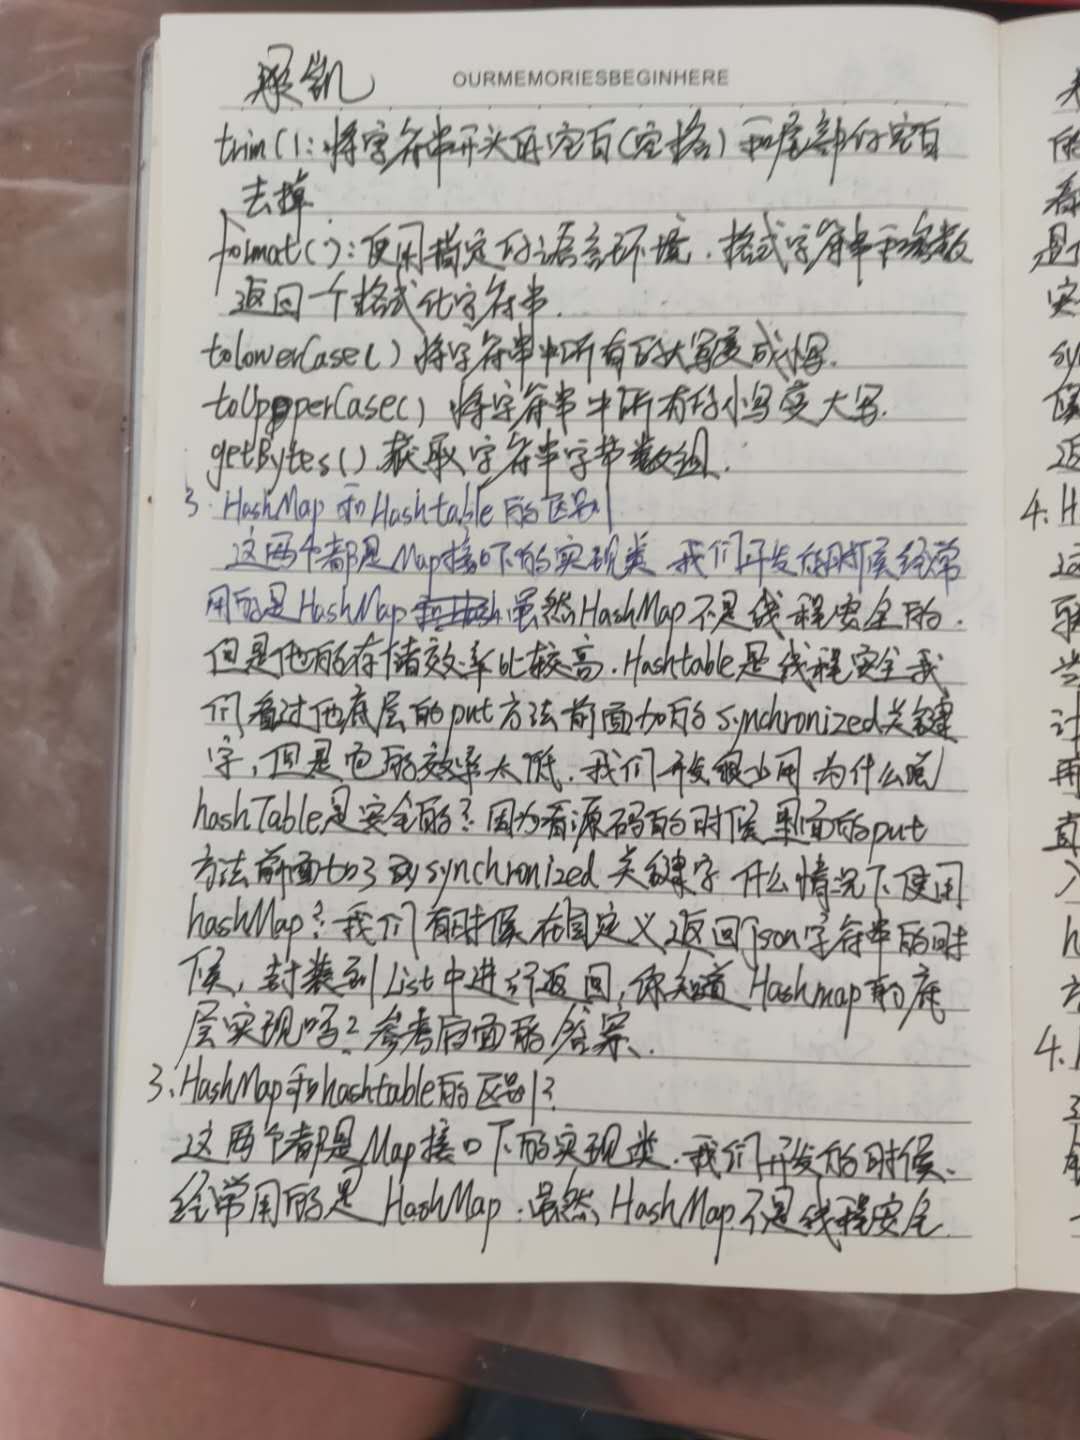 梁凯
OURMEMORIESBEGINHERE
trim(): 将字符串开头的空白(空格)和尾部的空白
去掉
format(): 使用指定的语言环境. 格式字符串和参数
返回一个格式化字符串.
toLowerCase() 将字符串中所有的大写变成小写.
toUppperCase() 将字符串中所有的小写变大写.
getBytes() 获取字符串字节数组.
3. HashMap 和 Hashtable 的区别
这两个都是Map接口下的实现类 我们开发的时候经常
用的是 HashMap 虽然HashMap 不是线程安全的.
但是他的存储效率比较高. Hashtable是线程安全 我
们看过他底层的put方法前面加的 Synchronized关键
字, 但是它的效率太低. 我们开发很少用 为什么呢
hashTable是安全的? 因为看源码的时候里面的put
方法前面加了 synchronized 关键字 什么情况下使用
hashMap? 我们有时候 在自定义返回json字符串的时
候, 封装到List中进行返回, 你知道 Hashmap 的底
层实现吗? 参考后面的答案.
3. HashMap和hashtable的区别?
这两个都是Map接口下的实现类. 我们开发的时候、
经常用的是 HashMap. 虽然 HashMap 不是线程安全.
4. H
4.